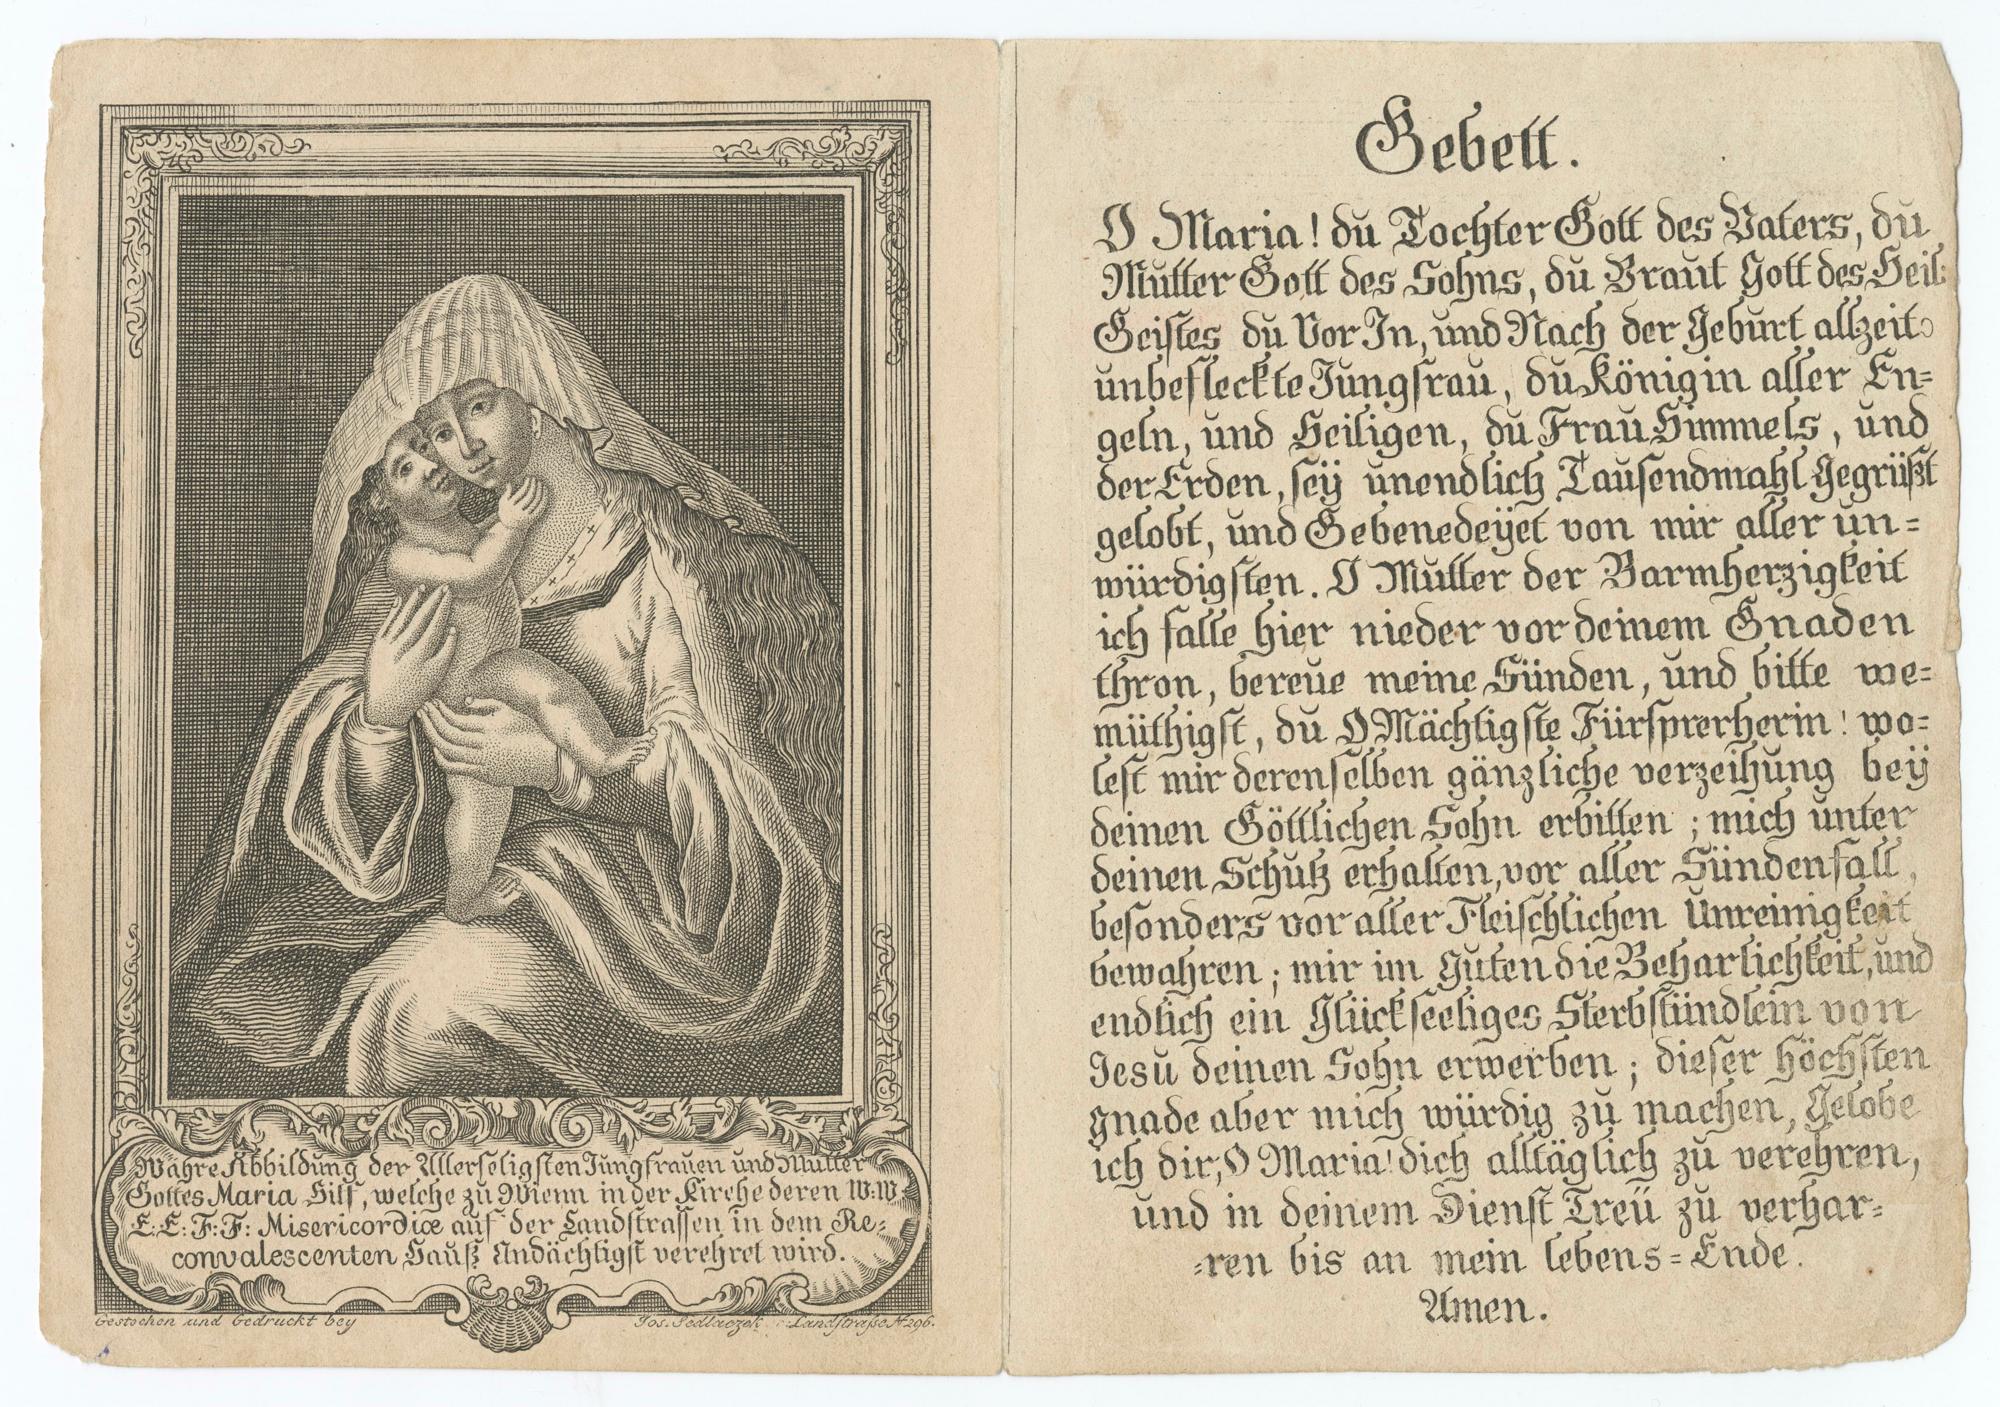 Wahre Abbildung der Allerseligsten Jungfrauen und Mutter
Gottes Maria Hilf, welche zu Wienn in der Kirche deren W:W:
E:E: F:F: Misericordiæ auf der Landstrassen in dem Re=
convalescenten Hauß Andächtigst verehret wird.
Gestochen und Gedruckt bey Jos. Sedlaczek Landstraße N 296.
Gebett.
O Maria! du Tochter Gott des Vaters, du
Mutter Gott des Sohns, du Braut Gott des Heil:
Geistes du Vor In, und Nach der Geburt allzeit
unbefleckte Jungfrau, du Königin aller En=
geln, und Heiligen, du Frau Himmels, und
der Erden, sey unendlich Tausendmahl Gegrüßt
gelobt, und Gebenedeyet von mir aller un=
würdigsten. O Mutter der Barmherzigkeit
ich falle hier nieder vor deinem Gnaden
thron, bereue meine Sünden, und bitte we=
müthigst, du O Mächtigste Fürsprerherin! wo=
lest mir derenselben gänzliche verzeihung bey
deinen Göttlichen Sohn erbitten; mich unter
deinen Schutz erhalten, vor aller Sündenfall,
besonders vor aller Fleischlichen Unreinigkeit
bewahren; mir im Guten die Beharlichkeit, und
endlich ein Glückseeliges Sterbstündlein von
Jesu deinen Sohn erwerben; dieser höchsten
gnade aber mich würdig zu machen, Gelobe
ich dir, O Maria! dich alltäglich zu verehren,
und in deinem Dienst Treü zu verhar=
=ren bis an mein lebens=Ende.
Amen.